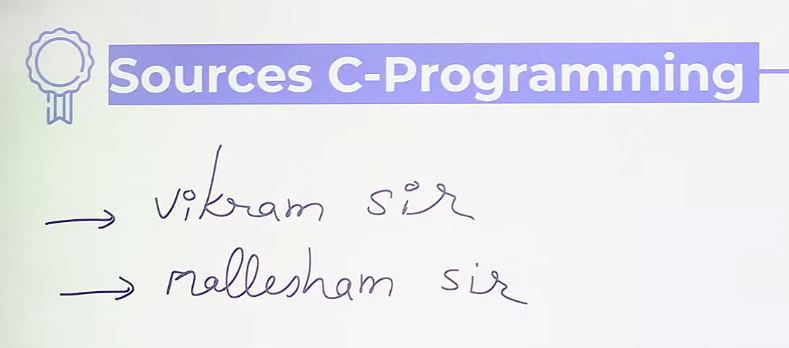 Sources C-Programming
→ vikram sir
→ mallesham sir